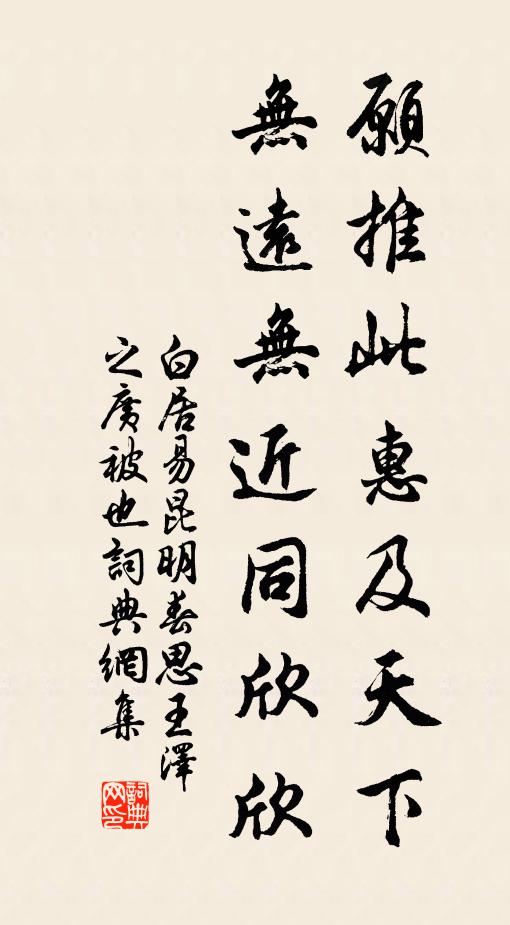 願推此惠及天下
無遠無近同欣欣
白居易昆明春思王澤
之廣被也詞典網集
詞典
网印